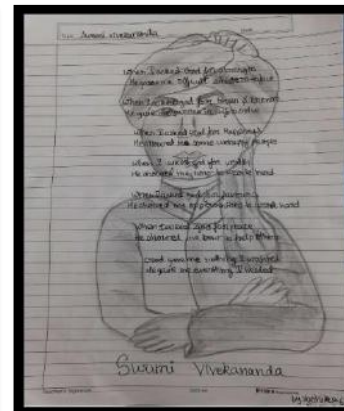 Swami Vivekananda
When I asked God for strength
He gave me difficult situations to face
When I asked God for brain & brown
He gave me puzzles in life to solve
When I asked God for happiness
He showed me some unhappy people
When I asked God for wealth
He showed me how to work hard
When I asked God for favours
He showed me opportunities to work hard
When I asked God for peace
He showed me how to help others
God gave me nothing I wanted
He gave me everything I needed
Swami Vivekananda
by